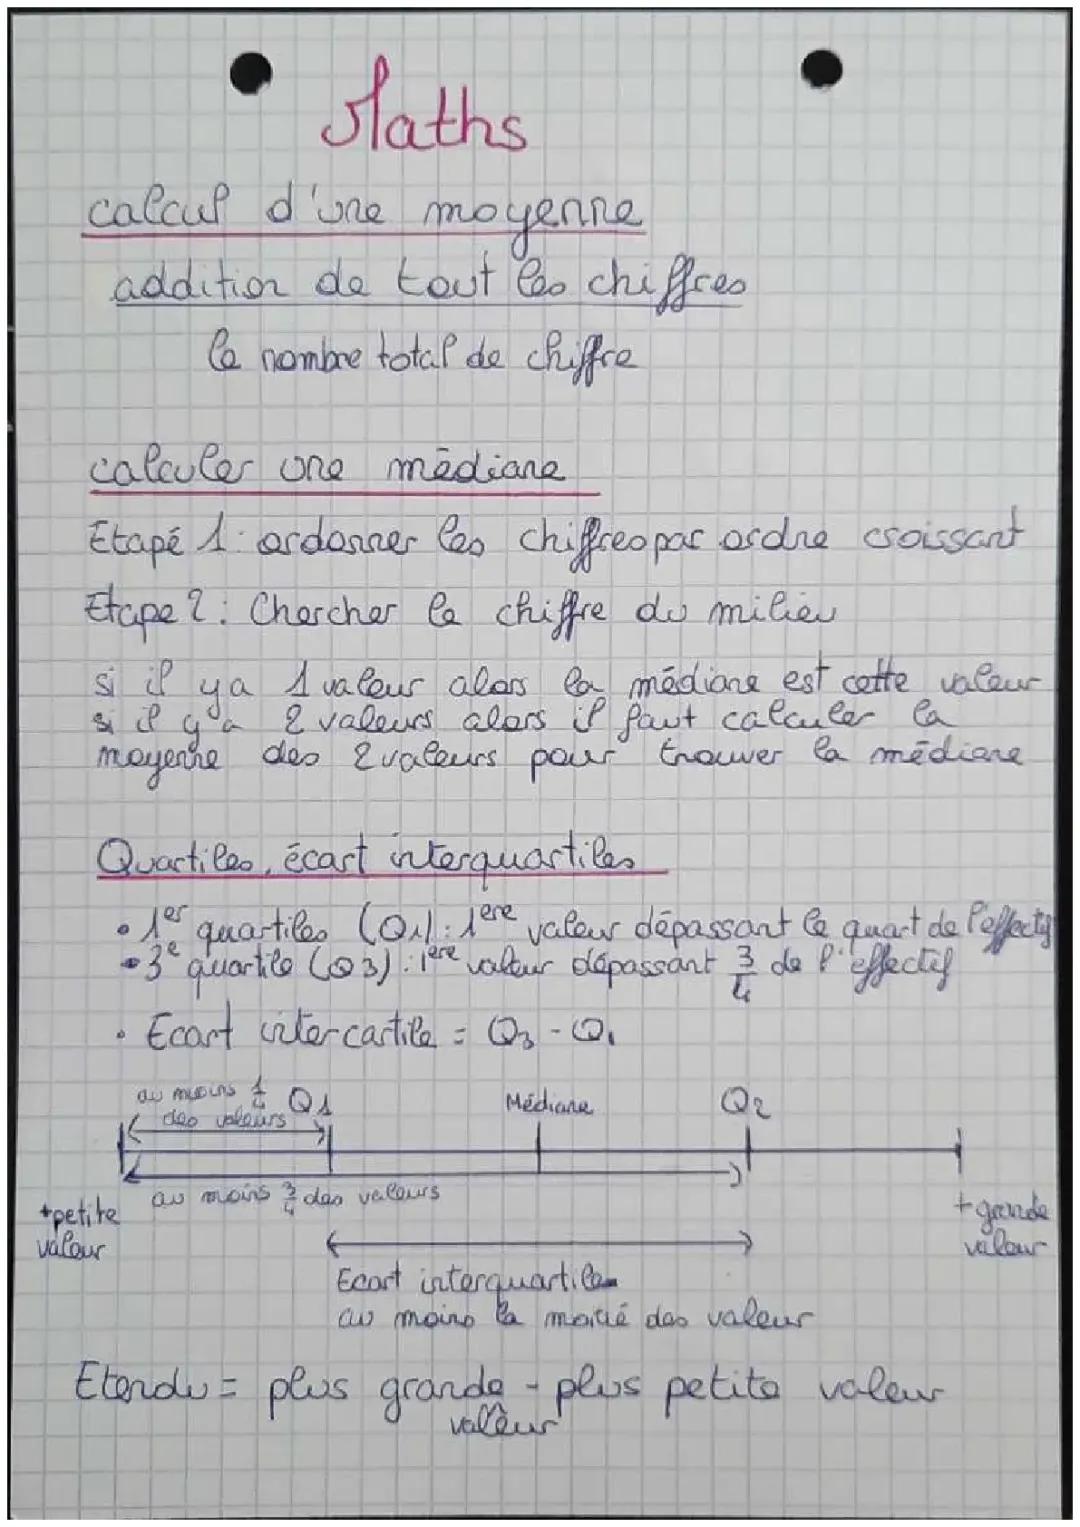 Maths
calcul d'une moyenne
addition de tout les chiffres
le nombre total de chiffre
calculer une médiane
Etapé 1: ordonner les chiffres par ordre croissant
Etape 2: Chercher le chiffre du milieu
si il y a 1 valeur alors la médiane est cette valeur
si il y a 2 valeurs alors il faut calculer la
moyenne des 2 valeurs pour trouver la médiane
Quartiles, écart interquartiles
• 1er quartiles (Q1): 1ere valeur dépassant le quart de l'effectif
• 3e quartile (Q3): 1ere valeur dépassant 3/4 de l'effectif
• Ecart intercartile = Q3 - Q1
au moins 1/4 des valeurs Q1 Médiane Q2
au moins 3/4 des valeurs
+petite valeur
+ grande valeur
Ecart interquartiles
au moins la moitié des valeur
Etendu = plus grande valeur - plus petite valeur